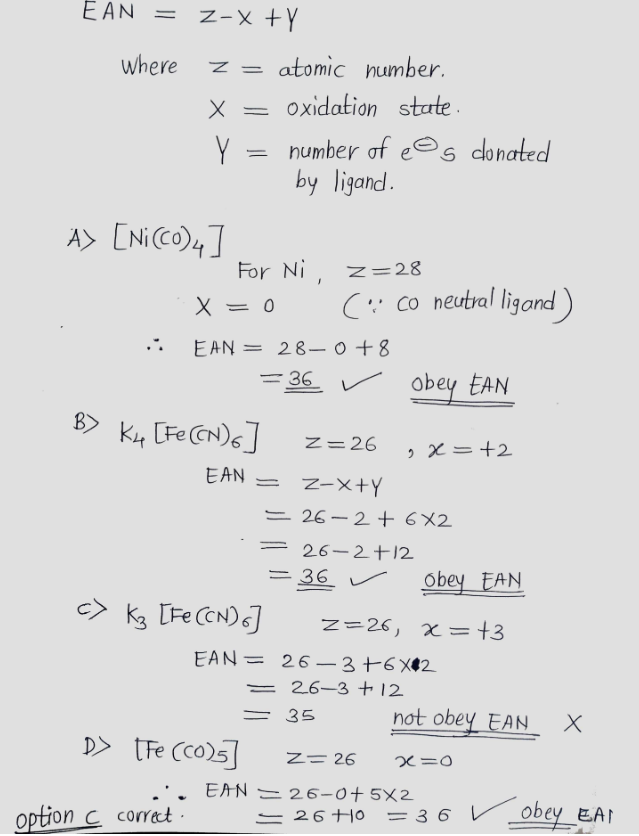 EAN = Z-X+Y
Where Z = atomic number.
X = oxidation state.
Y = number of e⊖s donated
by ligand.
A> [Ni(CO)4]
For Ni, Z=28
X = 0 (∵ CO neutral ligand)
∴ EAN = 28-0+8
=36 ✓ obey EAN
B> K4 [Fe(CN)6] Z=26, x=+2
EAN = Z-X+Y
= 26-2+6X2
= 26-2+12
= 36 ✓ obey EAN
C> K3 [Fe(CN)6] Z=26, x=+3
EAN = 26-3+6X2
= 26-3+12
= 35 not obey EAN X
D> [Fe(CO)5] Z=26 x=0
∴ EAN = 26-0+5X2
option C correct. = 26+10 = 36 ✓ obey EAN